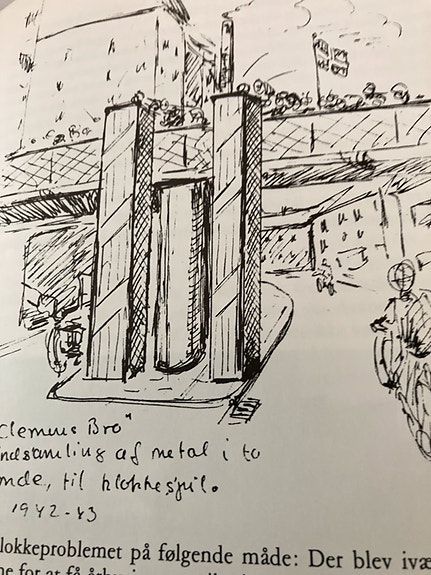 Clemens Bro"
ndsamling af metal i to
nde, til klokkespil.
1942-43
lokkeproblemet på følgende måde: Der blev ivæ
ne for at få